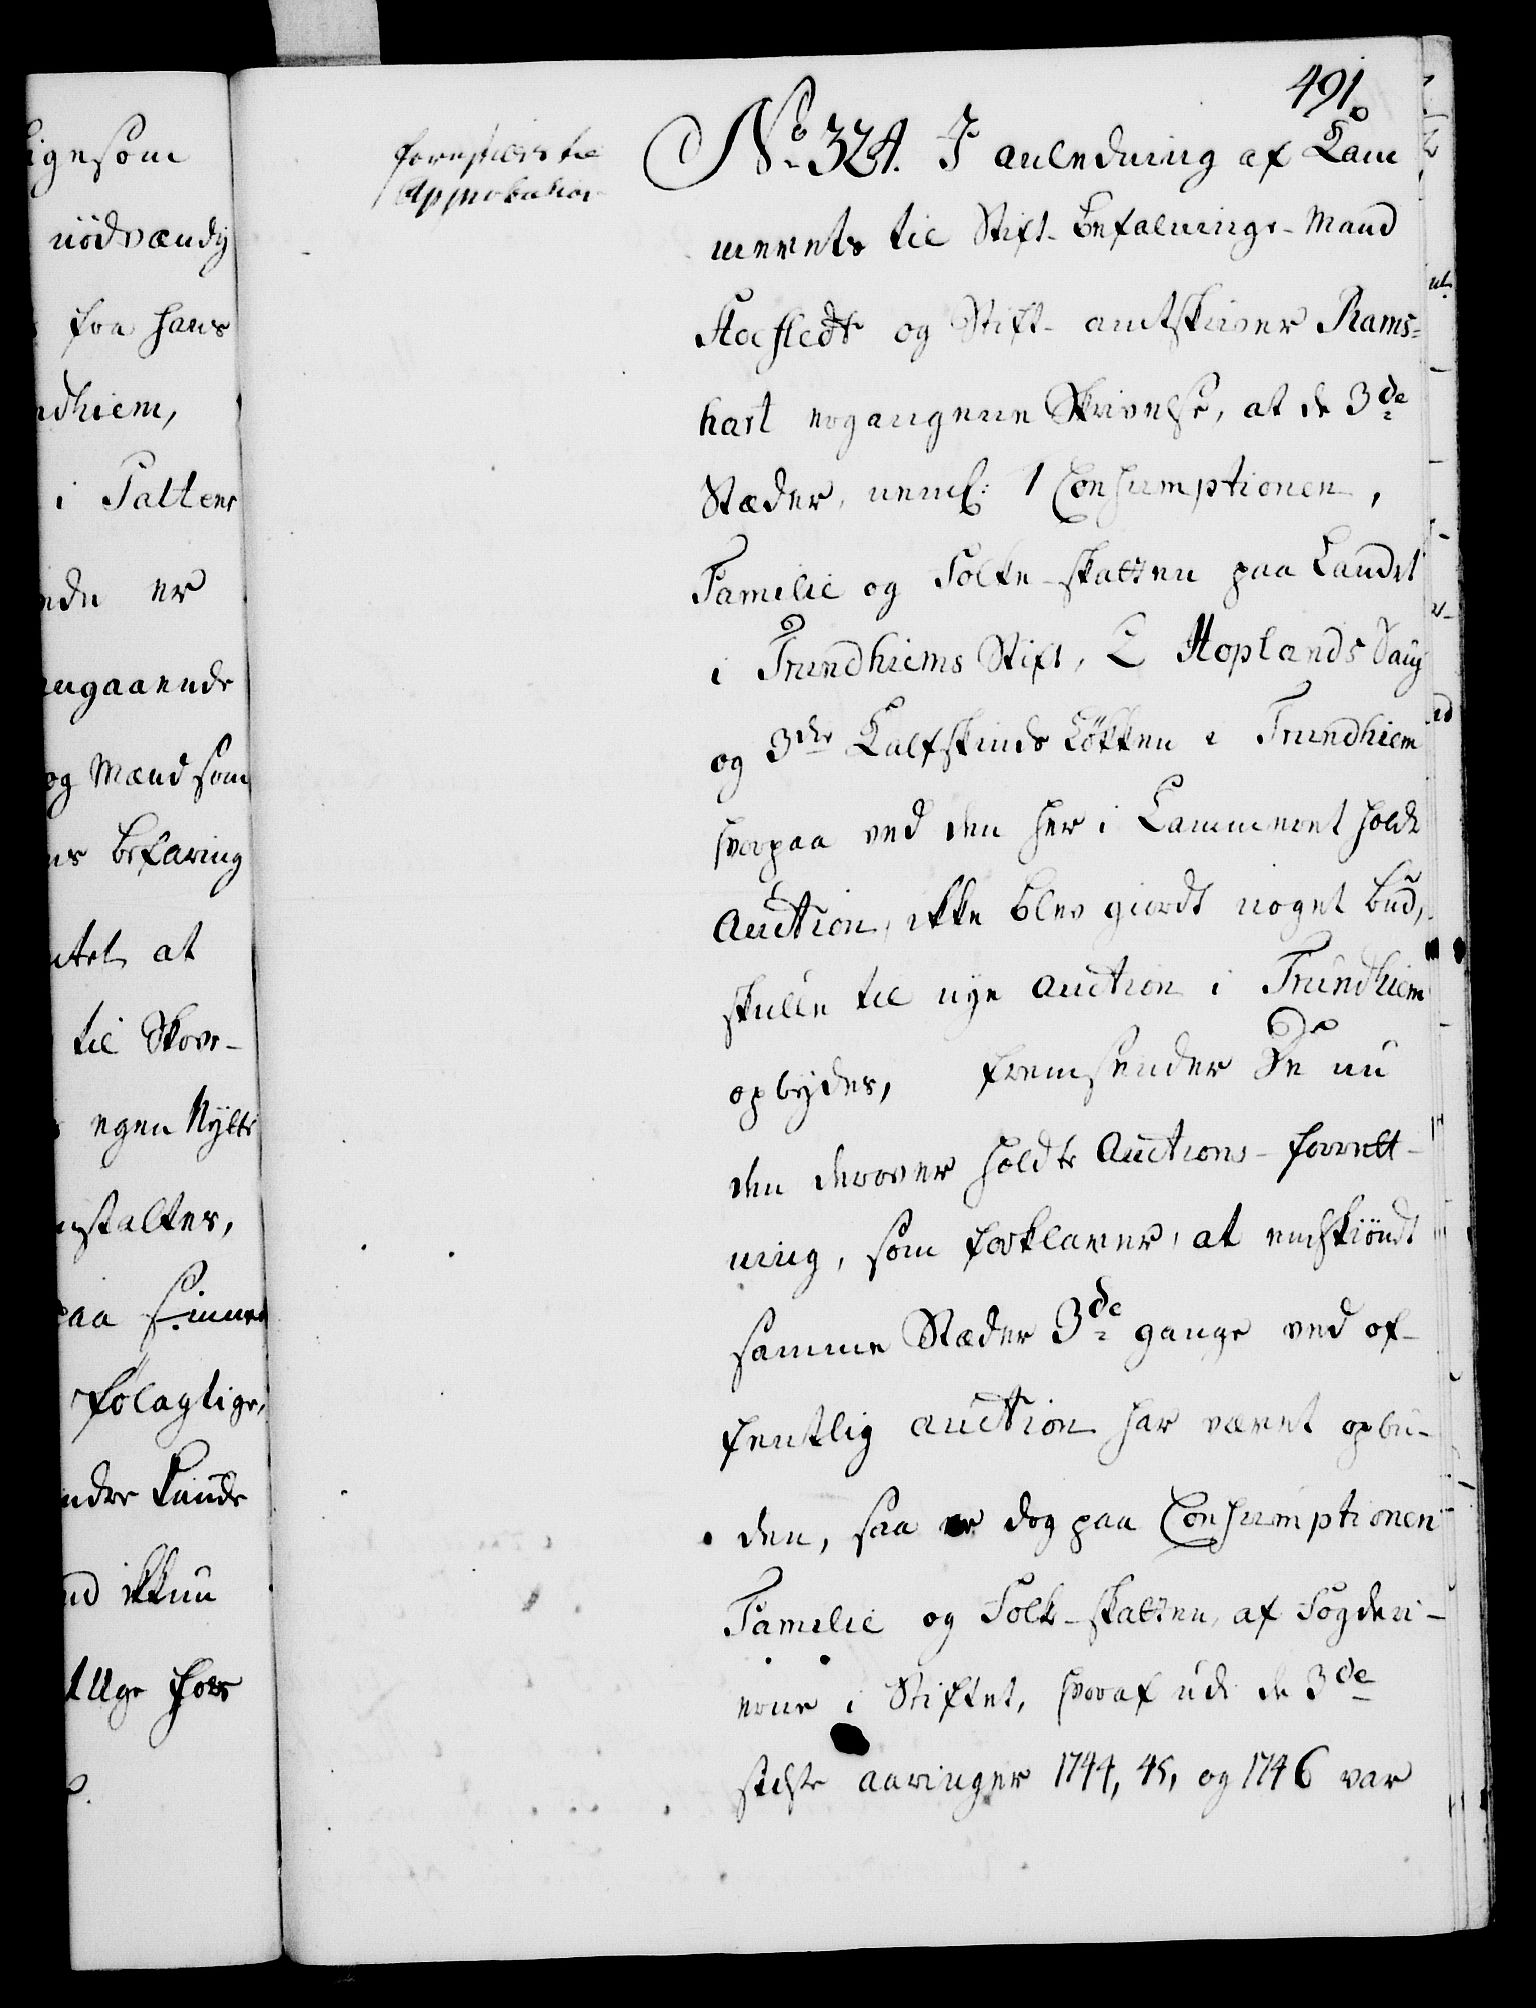 491.
forestilles til
Approbation
No. 324. I anledning af Kam
merets til Stift-Befalnings-Mand
Hoefledt og Stift-amtskriver Rams-
hart ergangene Skrivelse, at de 3de
Stæder, neml: 1 Consumptionen,
Familie og Folke-skatten paa Landet
i Trundhiems Stift, 2 Hoplands Saug
og 3die Kalfskinds Løkken i Trundhiem
hvorpaa ved den her i Cammeret holdte
Auction, ikke blev giordt noget bud,
skulle til nye auction i Trundhiem
opbydes, fremsender De nu
den derover holdte Auctions-forrett-
ning, som forklarer, at endskiöndt
samme Stæder 3de gange ved of-
fentlig auction har været opbu-
den, saa er dog paa Consumptionen
Familie og Folk-skatten, af Fogderi-
erne i Stiftet, hvoraf udi de 3de
sidste aaringer 1744, 45, og 1746 var
igesom
nödvændig
fra hans
ndhiem,
i Tatten
ede er
angaaende
og Mand som
ns befaring
tet at
til Skov-
egen Nytte
nstaltes,
paa
følagtige,
ndre
nd ikkun